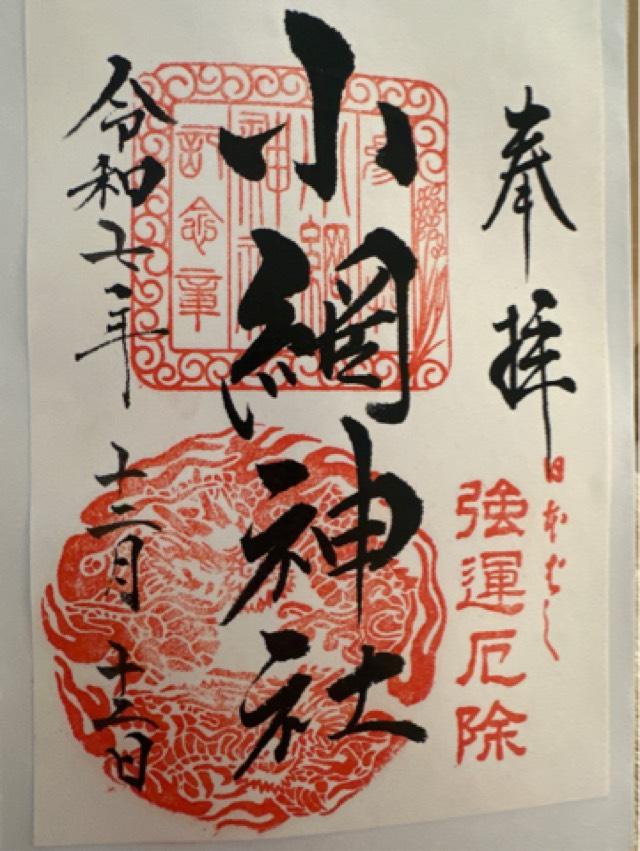 奉拝
日本ばし
強運厄除
小網神社
小網神社
記念章
令和七年十二月十二日